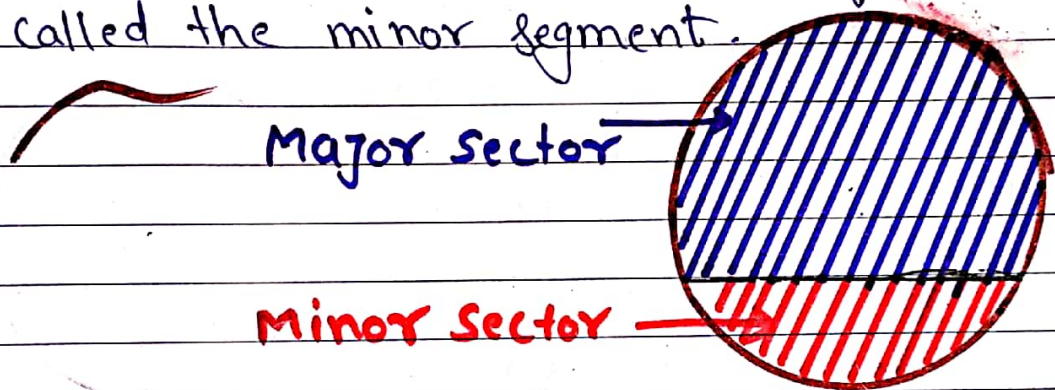 called the minor segment.
Major sector
Minor sector